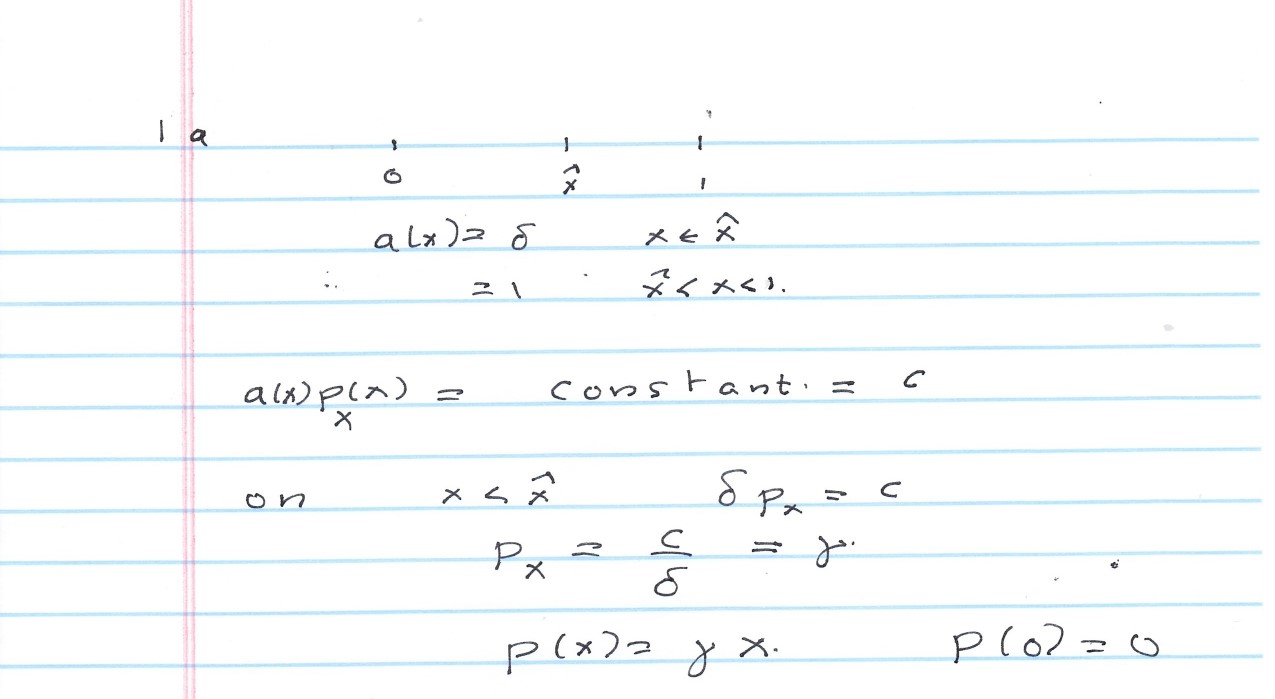 1 a
0 x̂ 1
a(x) = δ x < x̂
= 1 x̂ < x < 1.
a(x) p_x(x) = constant. = c
on x < x̂ δ p_x = c
p_x = c/δ = γ.
p(x) = γ x. p(0) = 0